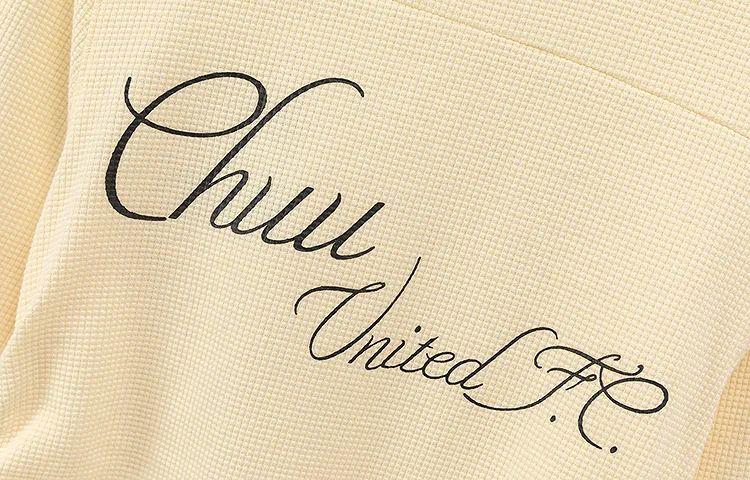 Chuu
United F.C.